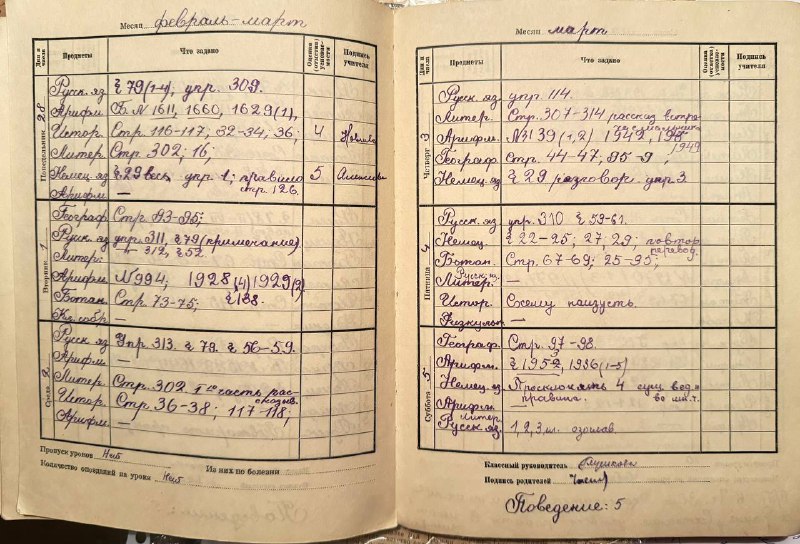 Месяц февраль-март
Дни и числа Предметы Что задано Оценка (отметка) успеваемости Подпись учителя
Понедельник 28
Русск. яз. § 79 (1-4); упр. 309.
Арифм. Б. № 1611, 1660, 1629 (1),
Истор. Стр. 116-117; 32-34; 36; 4
Литер. Стр. 302; 16;
Немец. яз. § 29 весь упр. 1; правило 5
стр. 126.
Арифм. —
Вторник 1
Географ. Стр. 93-95;
Русск. яз. упр. 311, § 79 (примечание)
Литер. 312, § 52.
Арифм. № 994; 1928 (4) 1929 (2)
Ботан. Стр. 73-75; § 138.
Кл. собр. —
Среда 2
Русск. яз. Упр. 313. § 79. § 56-59.
Арифм. —
Литер. Стр. 302. Iая часть рас-
сказыв.
Истор. Стр. 36-38; 117-118;
Арифм. —
Пропуск уроков Нет
Из них по болезни
Количество опозданий на урока Нет
Месяц март
Дни и числа Предметы Что задано Оценка (отметка) успеваемости Подпись учителя
Четверг 3
Русск. яз. упр. 114.
Литер. Стр. 307-314 рассказ
Арифм. № 139 (1,2) 1942,
1949
Географ. Стр. 44-47; 95-9
Немец. яз. § 29 разговор. упр 3.
Пятница 4
Русск. яз. упр. 310 § 59-61.
Немец. § 22-25; 27; 29; повтор
перевод.
Ботан. Стр. 67-69; 25-90;
Русск. яз.
Литер. —
Истор. Схему наизусть.
Физкульт. —
Суббота 5
Географ. Стр. 97-98.
Арифм. 1986 (1-5)
Немец. яз. Просклонять 4 сущ. в ед. и
правила. во мн. ч.
Арифм. —
Литер.
Русск. яз. 1, 2, 3, кл.
Классный руководитель
Подпись родителей
Поведение: 5